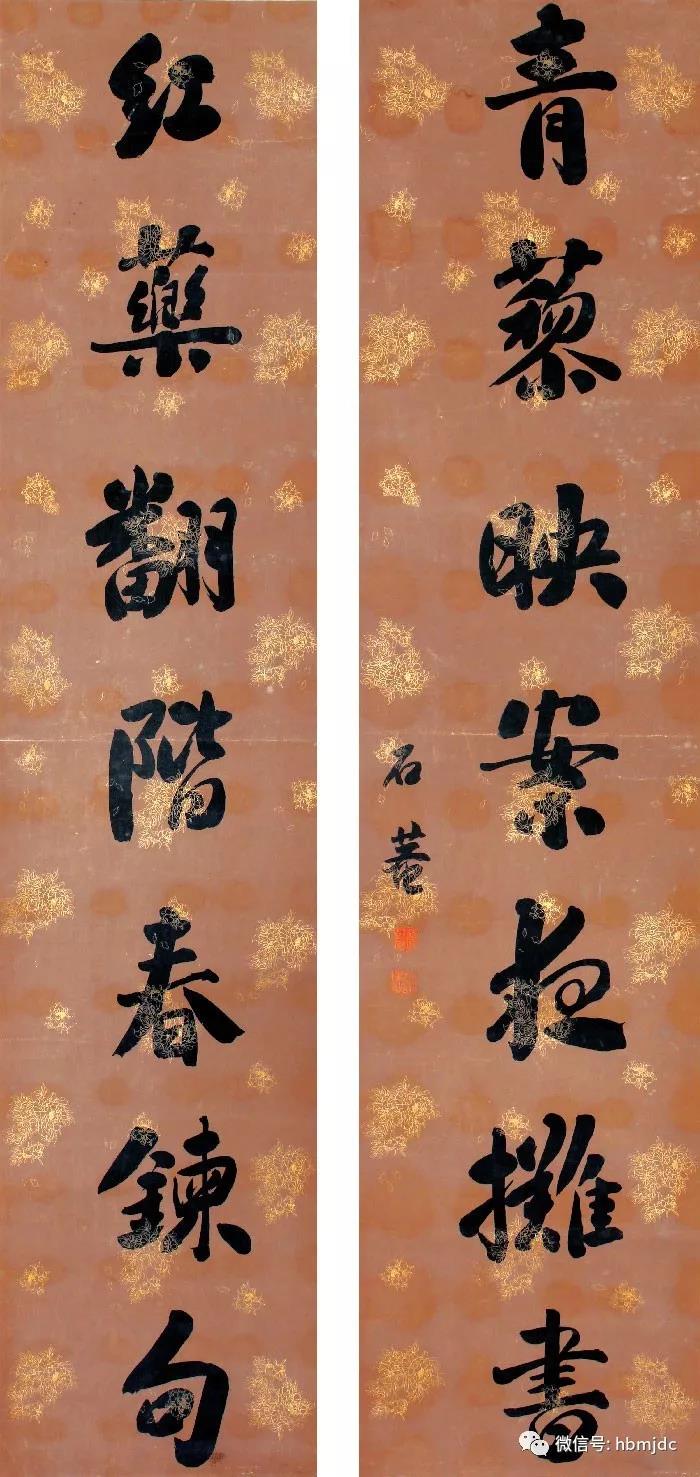 青藜映案夜攤書
石菴
紅藥翻階春鍊句
微信号: hbmjdc